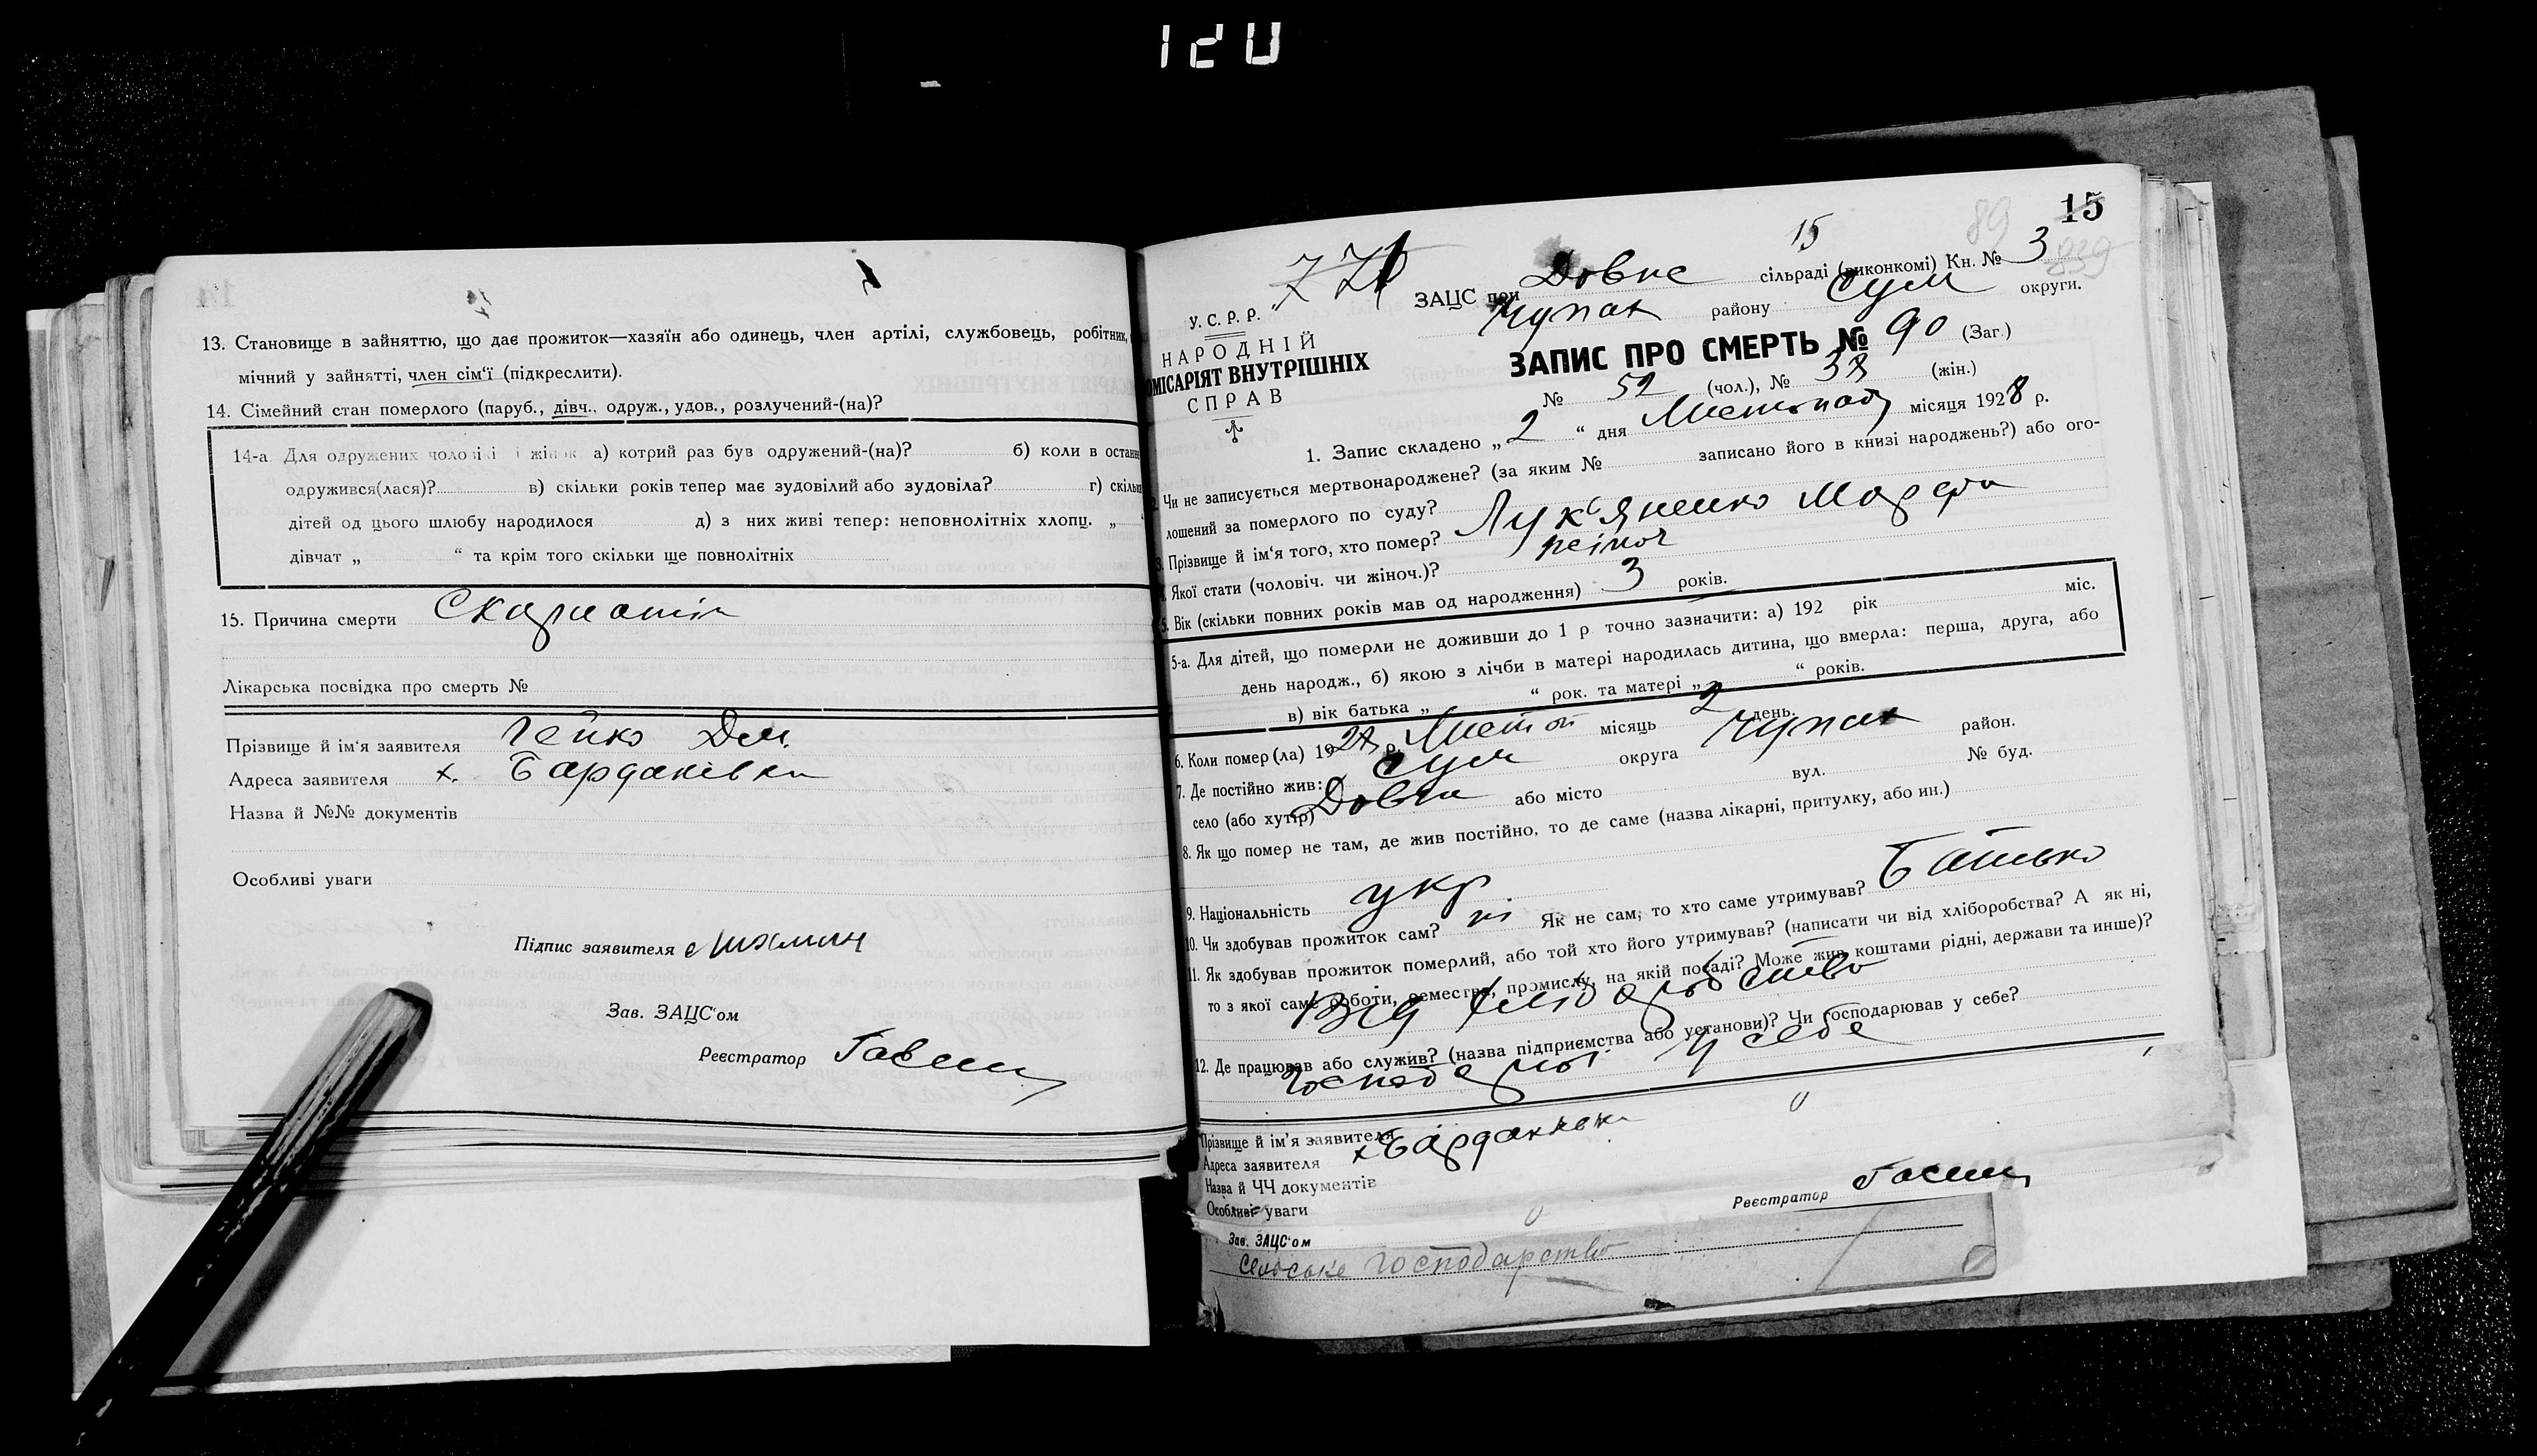 120
13. Становище в зайняттю, що дає прожиток—хазяїн або одинець, член артілі, службовець, робітник,
мічний у зайнятті, член сім'ї (підкреслити).
14. Сімейний стан померлого (паруб., дівч., одруж., удов., розлучений-(на)?
14-а. Для одружених чоловіків і жінок а) котрий раз був одружений-(на)? б) коли в останн
одружився(лася)? в) скільки років тепер має зудовілий або зудовіла? г) скільк
дітей од цього шлюбу народилося д) з них живі тепер: неповнолітніх хлопц. „
дівчат „ “ та крім того скільки ще повнолітніх
15. Причина смерти Скарлатін
Лікарська посвідка про смерть №
Прізвище й ім'я заявителя Гейко Дм.
Адреса заявителя х. Бардаківка
Назва й №№ документів
Особливі уваги
Підпис заявителя
Зав. ЗАЦС'ом
Реєстратор
15
15
89
839
771
У. С. Р. Р.
НАРОДНІЙ
ОМІСАРІЯТ ВНУТРІШНІХ
СПРАВ
ЗАЦС при Довне сільраді (виконкомі) Кн. № 3
Чупах району Сум округи.
ЗАПИС ПРО СМЕРТЬ № 90 (Заг.)
№ 52 (чол.), № 38 (жін.)
1. Запис складено „2“ дня Листопад місяця 1928 р.
2. Чи не записується мертвонароджене? (за яким № записано його в книзі народжень?) або ого-
лошений за померлого по суду?
3. Прізвище й ім'я того, хто помер? Лук'яненко Марфа
4. Якої стати (чоловіч. чи жіноч.)? жіноч
5. Вік (скільки повних років мав од народження) 3 років.
5-а. Для дітей, що померли не доживши до 1 р точно зазначити: а) 192 рік міс.
день народж., б) якою з лічби в матері народилась дитина, що вмерла: перша, друга, або
в) вік батька „ “ рок. та матері „ “ років.
6. Коли помер(ла) 1928 р. Листоп місяць 2 день.
7. Де постійно жив: Сум округа Чупах район.
село (або хутір) Довне або місто вул. № буд.
8. Як що помер не там, де жив постійно, то де саме (назва лікарні, притулку, або ин.)
9. Національність укр
10. Чи здобував прожиток сам? ні Як не сам, то хто саме утримував? Батько
11. Як здобував прожиток померлий, або той хто його утримував? (написати чи від хліборобства? А як ні,
то з якої саме роботи, ремества, промислу, на якій посаді? Може жив коштами рідні, держави та инше)?
Від хліборобства
12. Де працював або служив? (назва підприємства або установи)? Чи господарював у себе?
Господарюв у себе
Прізвище й ім'я заявителя
Адреса заявителя х Бардаківка
Назва й ЧЧ документів
Особливі уваги
Реєстратор
Зав. ЗАЦС'ом
сельське господарство